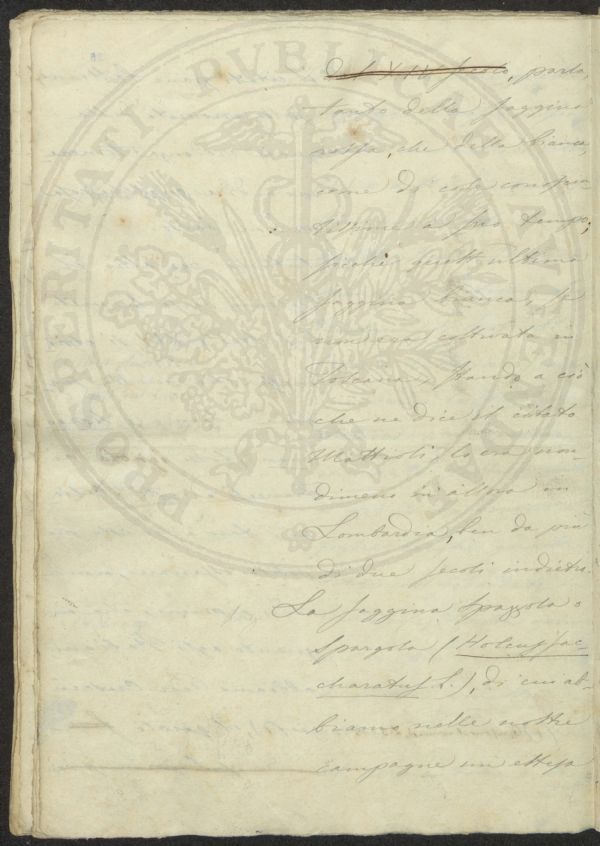 del XIV secolo, parla
tanto della saggina
rossa, che della bianca,
come di cose conosciu
tissime a suo tempo;
sicchè quest'ultima
saggina bianca, se
non era coltivata in
Toscana, stando a ciò
che ne dice il citato
Mattioli, lo era non-
dimeno in allora in
Lombardia, ben da più
di due secoli indietro.
La saggina spazzola o
spargola (Holcus sac-
charatus L.), di cui ab-
biamo nelle nostre
campagne un estesa
PROSPERITATI PVBLICAE AVGENDAE